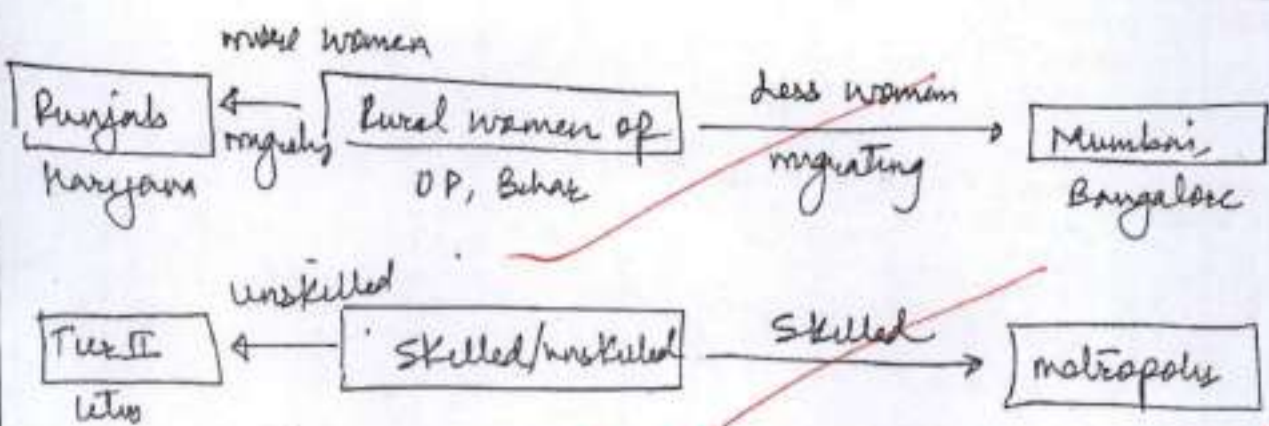 more women
Punjab
Haryana
migrating
Rural women of
UP, Bihar
Less women
migrating
Mumbai,
Bangalore
unskilled
Tier II
Skilled/unskilled
Skilled
metropolis